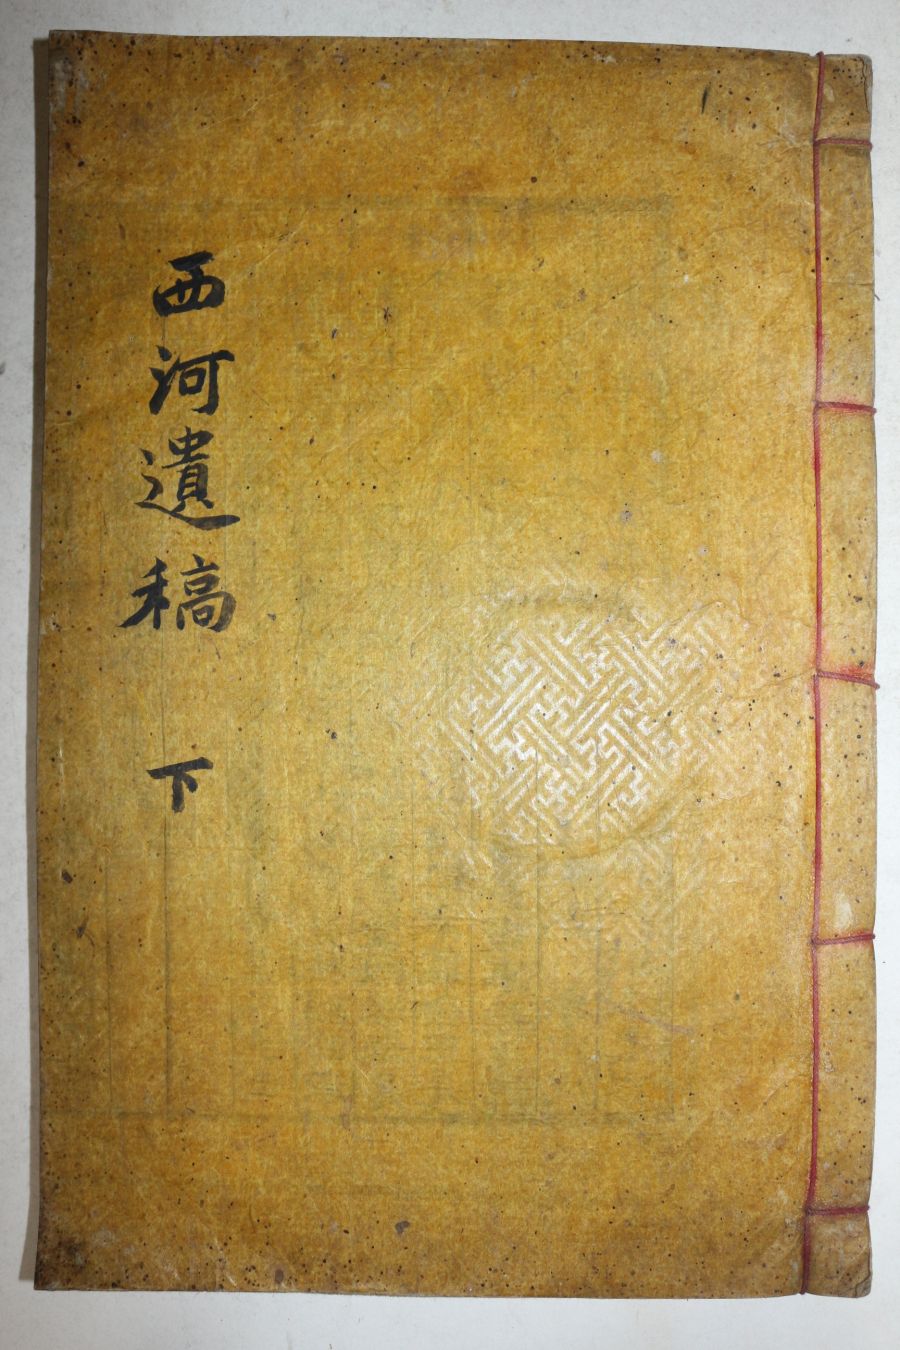 西河遺稿 下